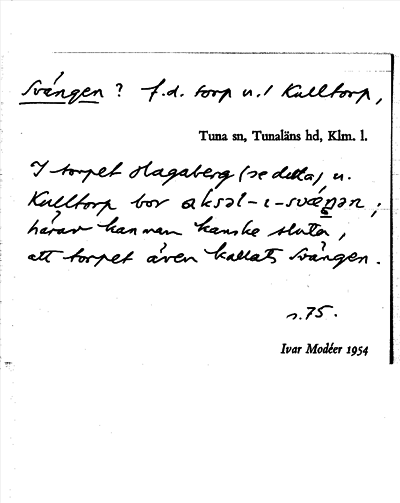 Svängen? f.d. torp u./ Kulltorp,
Tuna sn, Tunaläns hd, Klm. l.
I torpet Hagaberg (se detta) u.
Kulltorp bor aksəl-ı-sväŋən;
härav kan man kanske sluta,
att torpet även kallats Svängen.
s. 75.
Ivar Modéer 1954